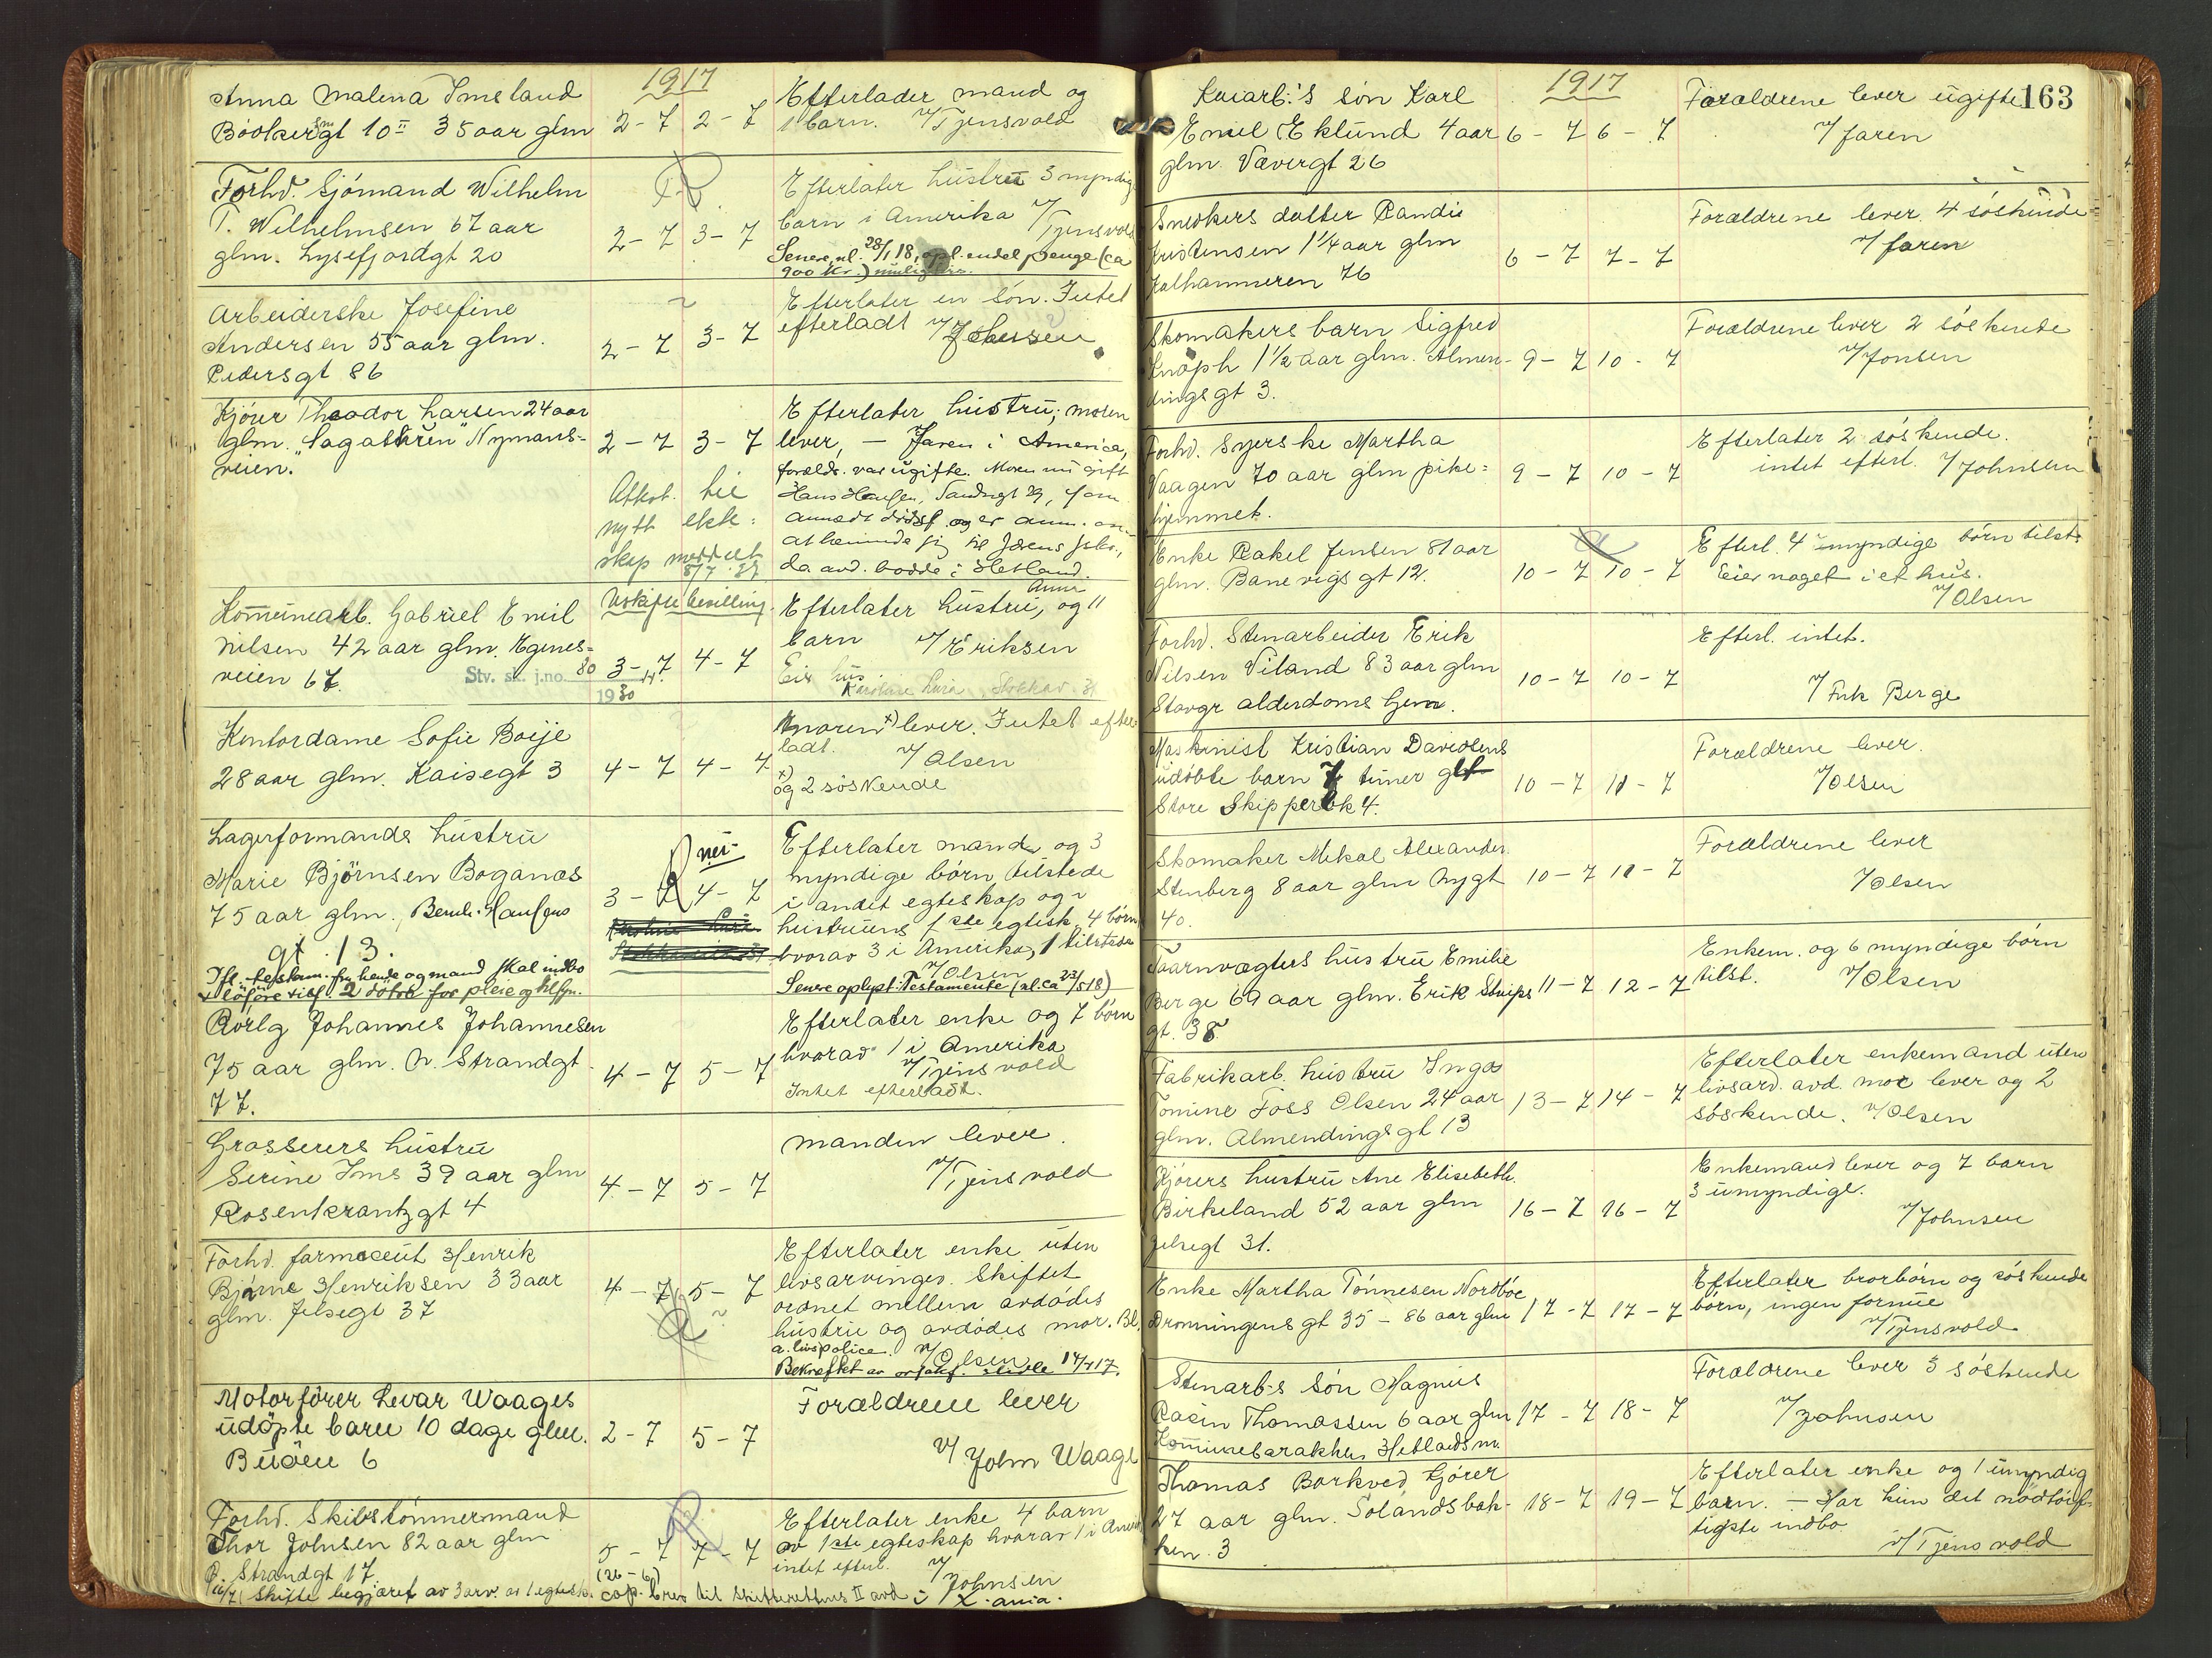 1917
Anna Malena Imsland
Bödkergt 10 II 35 aar glm
2-7 2-7
Efterlader mand og
1 barn. v/Tjensvold
Forhv. Sjömand Wilhelm
T. Wilhelmsen 67 aar
glm. Lysefjordgt 20
2-7 3-7
Efterlater hustru 3 myndige
barn i Amerika v/Tjensvold
Senere, nl. 28/1 18, opl. endel penge (ca
900 kr.)
Arbeiderske Josefine
Andersen 55 aar glm.
Pedersgt 86
2-7 3-7
Efterlater en sön. Intet
efterladt v/
Kjörer Theodor Larsen 24 aar
glm. "Sagatun" Nymans-
veien.
2-7 3-7
nytt ekte-
skap
8/7 37
Efterlater hustru; moren
lever, — Faren i America,
foreldr. var ugifte. Moren nu gift
da avd. bodde i Hetland.
Kommunearb. Gabriel Emil
Nilsen 42 aar glm. Egenes-
veien 67.
Stv. sk. j.no. 80
1930
Uskiftebevilling
3-7 4-7
Efterlater hustru, og 11
barn v/Eriksen
Eier hus.
Kontordame Sofie Boije
28 aar glm. Kaisegt 3
4-7 4-7
moren x) lever. Intet efter-
ladt. v/Olsen
x)
og 2 söskende
Lagerformands hustru
Marie Björnsen Boganæs
75 aar glm. Bernh. Hansens
gt. 13.
nei-
3-7 4-7
Efterlater mand og 3
myndige börn tilstede
i andet egteskap og
hustruens 1ste egtesk. 4 börn,
hvorav 3 i Amerika, 1 tilstede
v/Olsen
Senere oplyst: Testamente (nl. ca 23/5 18)
Ifl. testam. fra hende og mand skal indbo
2 dötre for pleie og tilsyn.
Rörlg Johannes Johannesen
75 aar glm. N. Strandgt
77.
4-7 5-7
Efterlater enke og 7 börn
hvorav 1 i Amerika
v/Tjensvold
Intet efterladt.
Grosserers hustru
Serine Ims 39 aar glm
Rosenkrantzgt 4
4-7 5-7
manden lever.
v/Tjensvold
Forhv. farmaceut Henrik
Bjarne Henriksen 33 aar
glm. Jelsegt 37
4-7 5-7
Efterlater enke uten
livsarvinger. Skiftet
ordnet mellem avdödes
hustru og avdödes mor. Bl.
a. livspolice. v/Olsen
Motorförer Levar Waages
udöpte barn 10 dage glm.
Buöen 6
2-7 5-7
Forældrene lever
v/ John Waage
Forhv. Skibstömmermand
Thor Johnsen 82 aar glm
Ö. Strandgt 17
5-7 7-7
(26-6)
Efterlater enke 4 barn
av 1ste egteskap hvorav 1 i Amerika
intet efterl. v/Johnsen
Skifte begjæret av 3 arv. av 1 egtesk. cop. brev til Skifterettens II avd i X.ania.
163
1917
Kaiarb:'s sön Karl
Emil Eklund 4 aar
glm. Vævergt 26
6-7 6-7
Forældrene lever ugifte
v/faren
Snedkers datter Randi
Kristensen 1 1/4 aar glm
Kalhammeren 76
6-7 7-7
Forældrene lever. 4 söskende
v/faren
Skomakers barn Sigfred
Knoph 1 1/2 aar glm. Almen-
ningsgt 3.
9-7 10-7
Forældrene lever 2 söskende
v/Jonsen
Forhv. Syerske Martha
Vaagen 70 aar glm pike-
hjemmet.
9-7 10-7
Efterlater 2 söskende.
intet efterl. v/Johnsen
Enke Rakel Jensen 81 aar
glm. Banevigsgt 12.
10-7 10-7
Efterl. 4 myndige börn tilst.
Eier noget i et hus.
v/Olsen
Forhv. Stenarbeider Erik
Nilsen Viland 83 aar glm
Stavgr alderdomshjem.
10-7 10-7
Efterl. intet.
v/Frk Berge
Maskinist Kristian Davidsens
udöbte barn 7 timer
Store Skipperbk 4.
10-7 11-7
Forældrene lever.
v/Olsen
Skomaker Mekal Alexander
Stenberg 8 aar glm Nygt
40.
10-7 11-7
Forældrene lever
v/Olsen
Taarnvægters hustru Emilie
Berge 69 aar glm. Erik Skeips
gt. 38
11-7 12-7
Enkem. og 6 myndige börn
tilst. v/Olsen
Fabrikarb. hustru Inga
Tomine Foss Olsen 24 aar
glm. Almendingsgt 13
13-7 14-7
Efterlater enkemand uten
livsarv. avd. mor lever og 2
söskende. v/Olsen
Kjörers hustru Ane Elisebeth
Birkeland 52 aar glm
Jelsegt 31.
16-7 16-7
Enkemand lever og 7 barn
3 umyndige.
v/Johnsen
Enke Martha Tönnesen Nordböe
Dronningensgt 35 - 86 aar glm
17-7 17-7
Efterlater brorbörn og söskende
börn, ingen formue
v/Tjensvold
Stenarb-s sön Magnus
Rasin Thomassen 6 aar glm
Kommunebarakken Hetlandsm.
17-7 18-7
Forældrene lever 3 söskende
v/Johnsen
Thomas Borkved, kjörer
27 aar glm. Solandsbak-
ken 3
18-7 19-7
Efterlater enke og 1 umyndig
barn. — Har kun det nödtörf-
tigste indbo
v/Tjensvold